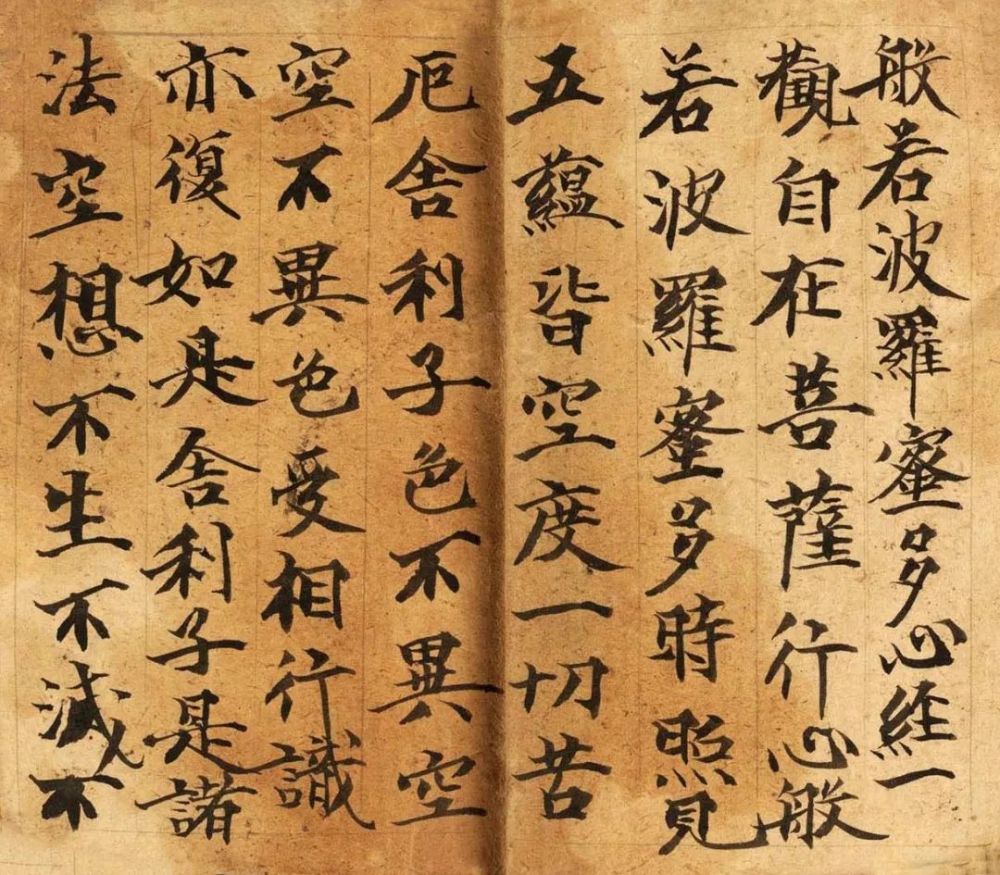 般若波羅蜜多心経一
觀自在菩薩行心般
若波羅蜜多時照見
五蘊皆空度一切苦
厄舍利子色不異空
空不異色受相行識
亦復如是舍利子是諸
法空想不生不滅不